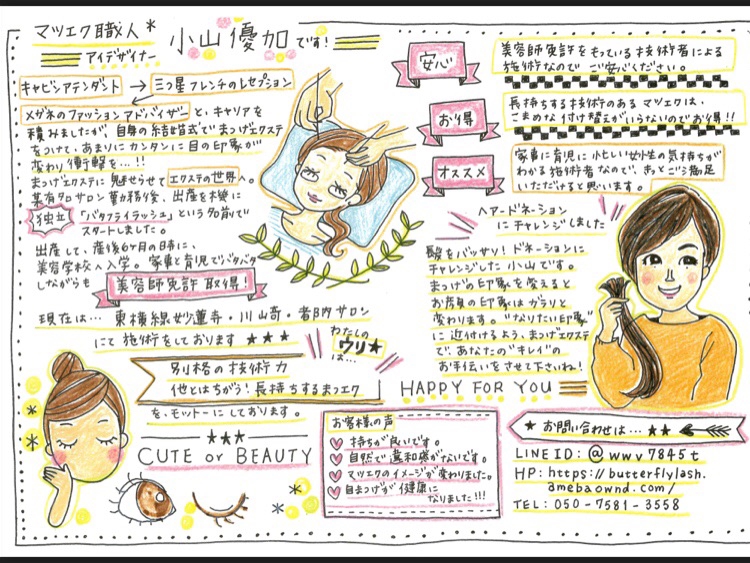 マツエク職人*
アイデザイナー
小山優加です!
キャビンアテンダント → 三つ星フレンチのレセプション
メガネのファッションアドバイザー と、キャリアを
積みましたが、自身の結婚式でまつげエクステ
をつけて、あまりにカンタンに目の印象が
変わり衝撃を…!!
まつげエクステに魅せらせてエクステの世界へ。
某有名サロン勤務後、出産を機に
独立 「バタフライラッシュ」という名前で
スタートしました。
出産して、産後6ヶ月の時に、
美容学校へ入学。家事と育児でバタバタ
しながらも 美容師免許取得!
現在は… 東横線妙蓮寺・川崎・都内サロン
にて施術をしております ★★★
わたしの
ウリ★
は…
別格の技術力
他とはちがう!長持ちするまつエク
を、モットーにしております。
★★★
CUTE or BEAUTY
安心
美容師免許をもっている技術者による
施術なのでご安心ください。
お得
長持ちする技術のあるマツエクは、
こまめな付け替えがいらないのでお得!!
オススメ
家事に育児に忙しい女性の気持ちが
わかる施術者なので、きっとご満足
いただけると思います。
ヘアードネーション
にチャレンジしました
髪をバッサリ!ドネーションに
チャレンジした小山です。
まつげの印象を変えると
お顔の印象はガラリと
変わります。"なりたい印象"
に近付けるよう、まつげエクステ
で、あなたの"キレイ"の
お手伝いをさせて下さいね!
HAPPY FOR YOU
お客様の声
持ちが良いです。
自然で違和感がないです。
マツエクのイメージが変わりました。
自まつげが健康に
なりました!!!
★お問い合わせは…★★
LINE ID: @wwv7845t
HP: https://butterflylash.
amebaownd.com/
TEL: 050-7581-3558